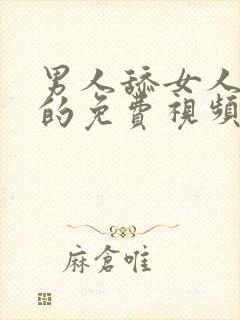 男人舔女人
的免費視頻
麻倉唯